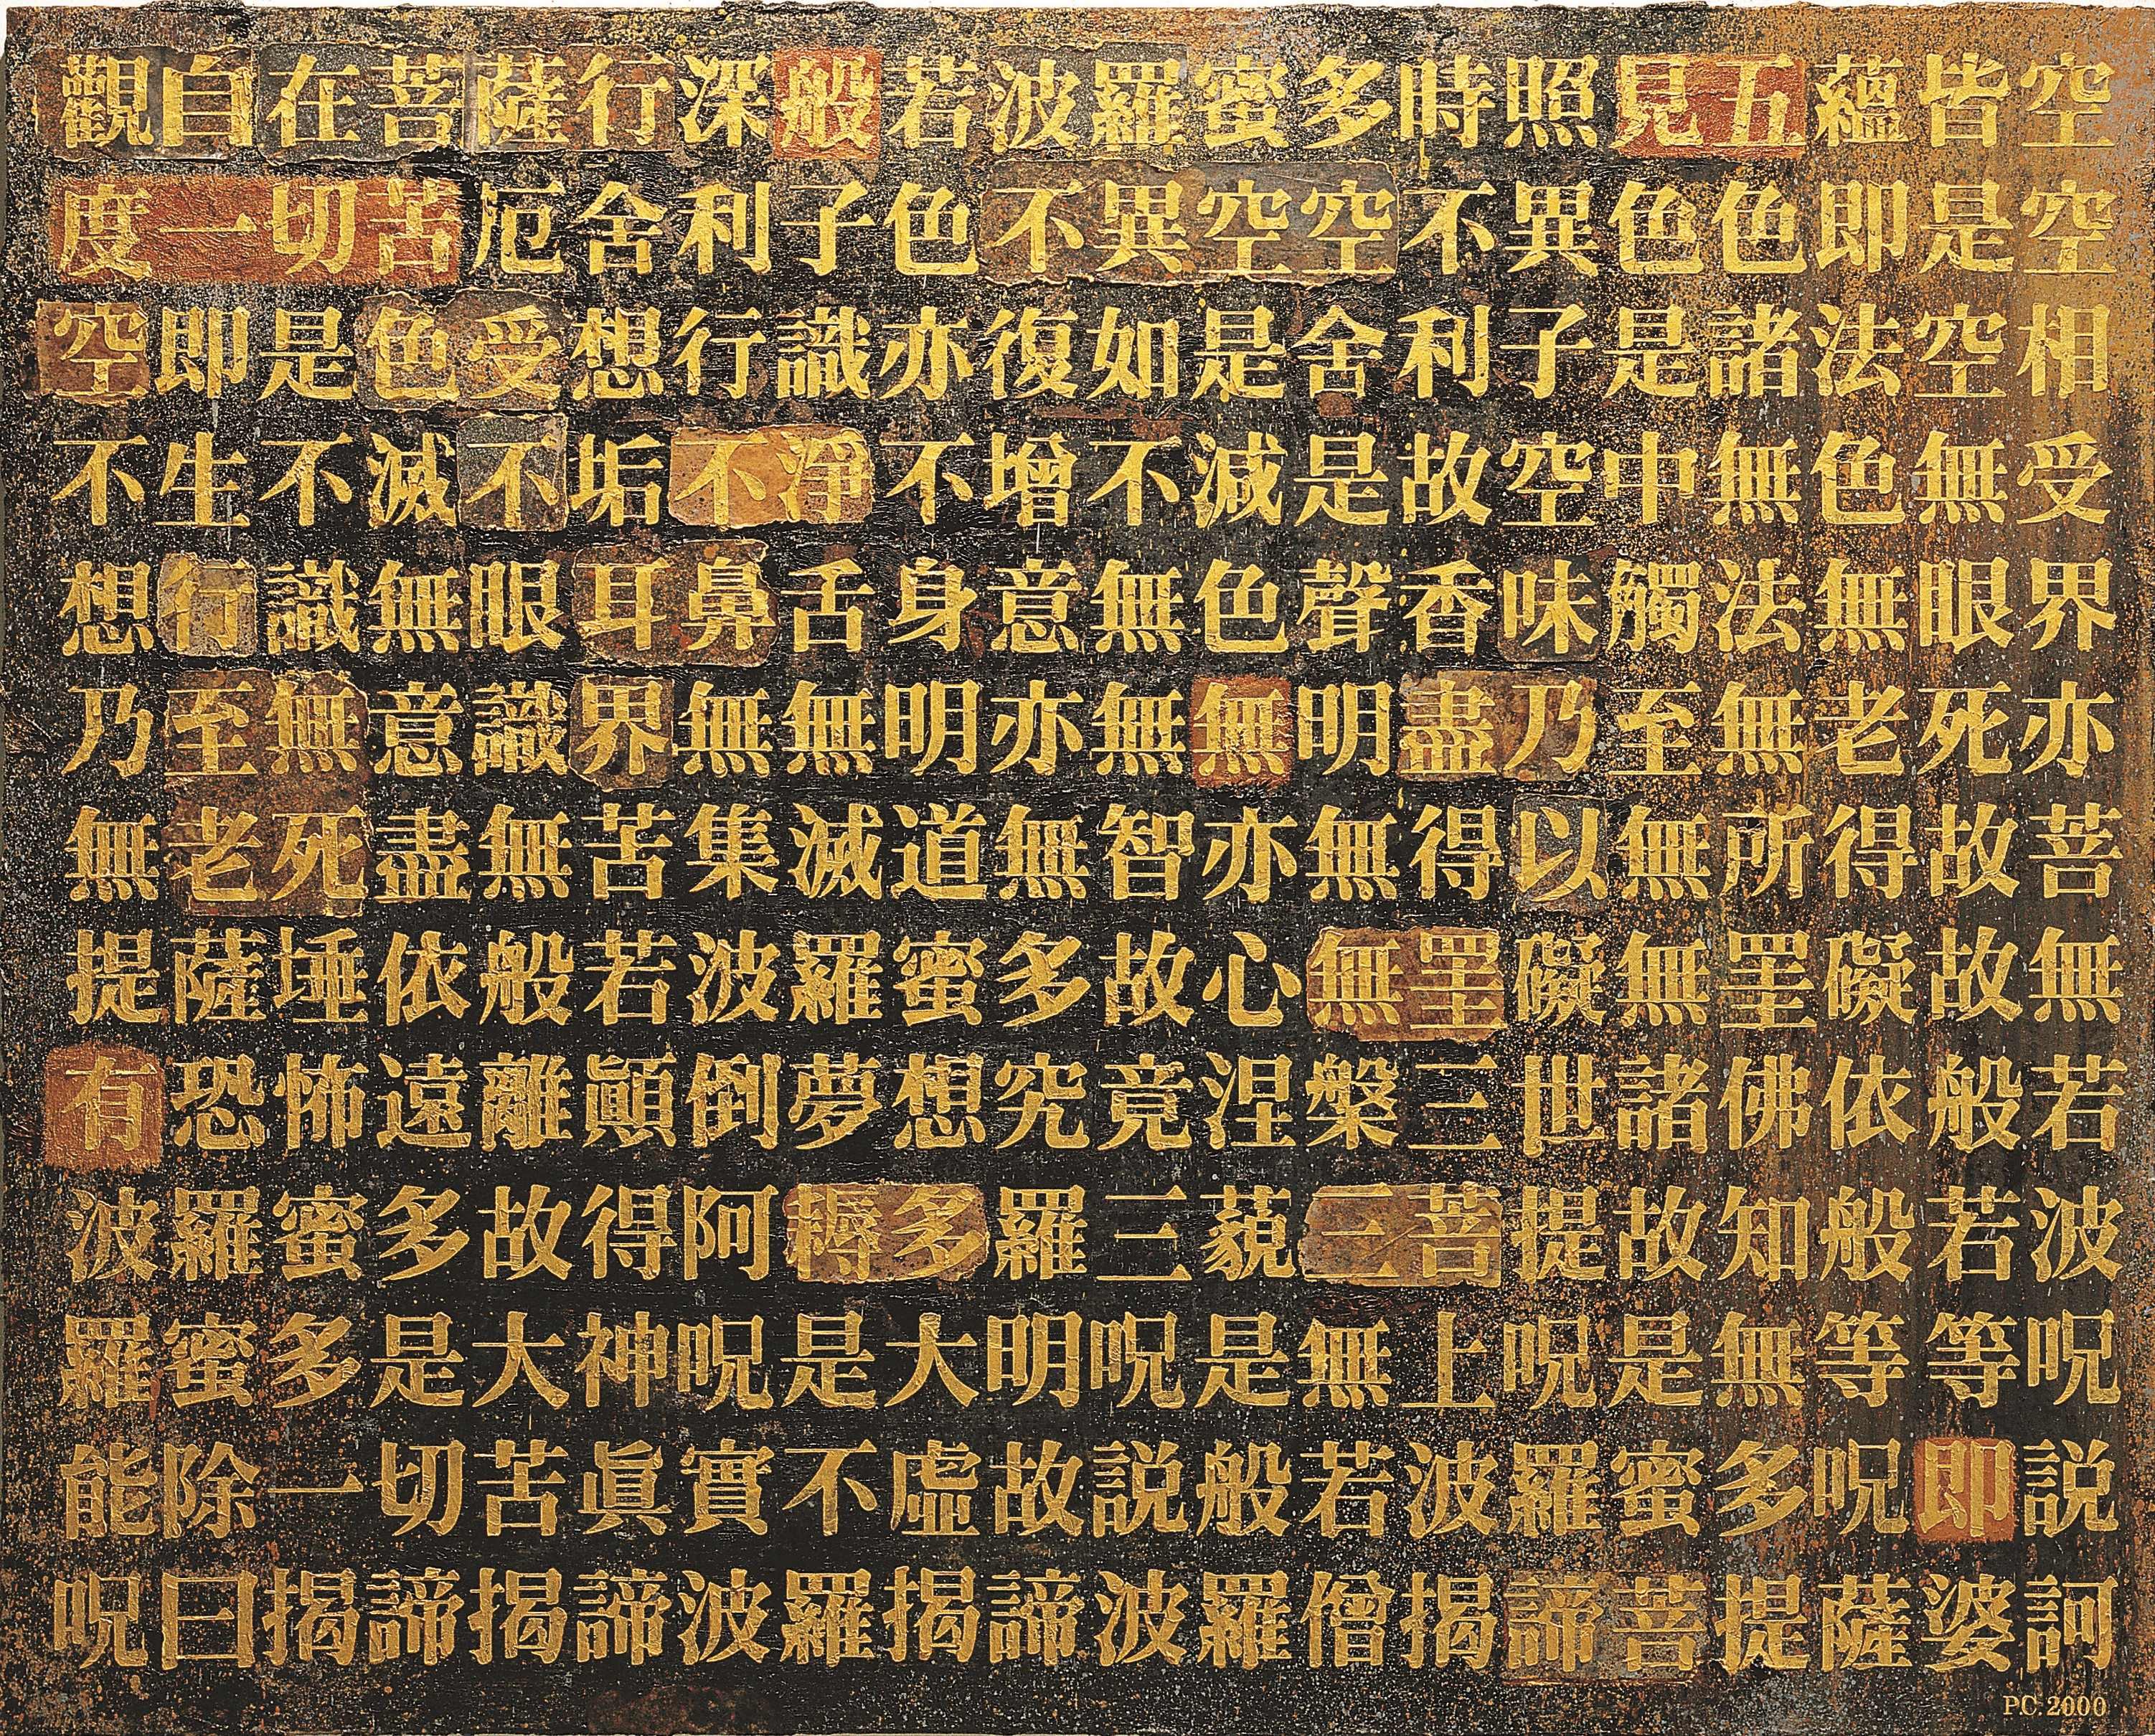 觀自在菩薩行深般若波羅蜜多時照見五蘊皆空
度一切苦厄舍利子色不異空空不異色色即是空
空即是色受想行識亦復如是舍利子是諸法空相
不生不滅不垢不淨不增不減是故空中無色無受
想行識無眼耳鼻舌身意無色聲香味觸法無眼界
乃至無意識界無無明亦無無明盡乃至無老死亦
無老死盡無苦集滅道無智亦無得以無所得故菩
提薩埵依般若波羅蜜多故心無罣礙無罣礙故無
有恐怖遠離顚倒夢想究竟涅槃三世諸佛依般若
波羅蜜多故得阿耨多羅三藐三菩提故知般若波
羅蜜多是大神呪是大明呪是無上呪是無等等呪
能除一切苦眞實不虛故説般若波羅蜜多呪即説
呪曰揭諦揭諦波羅揭諦波羅僧揭諦菩提薩婆訶
P.C.2000